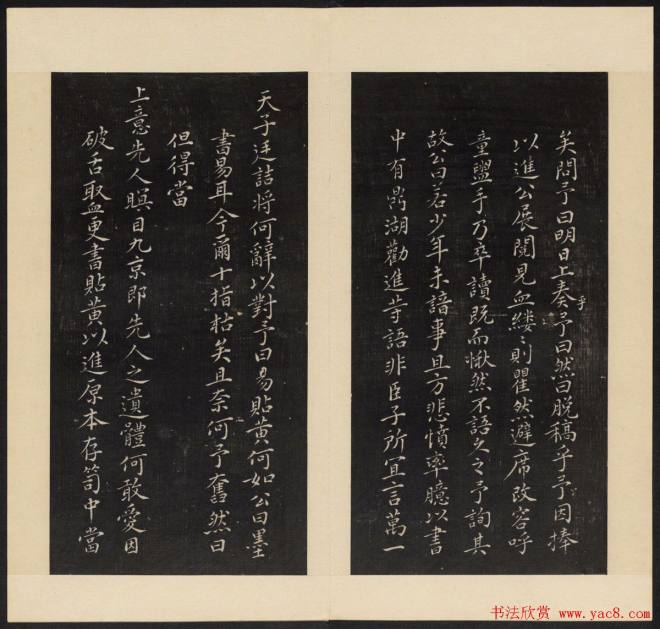 矣問予曰明日上奏乎予曰然曰脱稿乎予因捧
以進公展閱見血縷〻則瞿然避席改容呼
童盥手乃卒讀既而愀然不語久之予詢其
故公曰若少年未諳事且方悲憤率臆以書
中有鼎湖勸進等語非臣子所宜言萬一
天子廷詰將何辭以對予曰易貼黄何如公曰墨
書易耳今爾十指枯矣且奈何予奮然曰
但得當
上意先人瞑目九京即先人之遺體何敢愛因
破舌取血更書貼黄以進原本存笥中當
书法欣赏 www.yac8.com